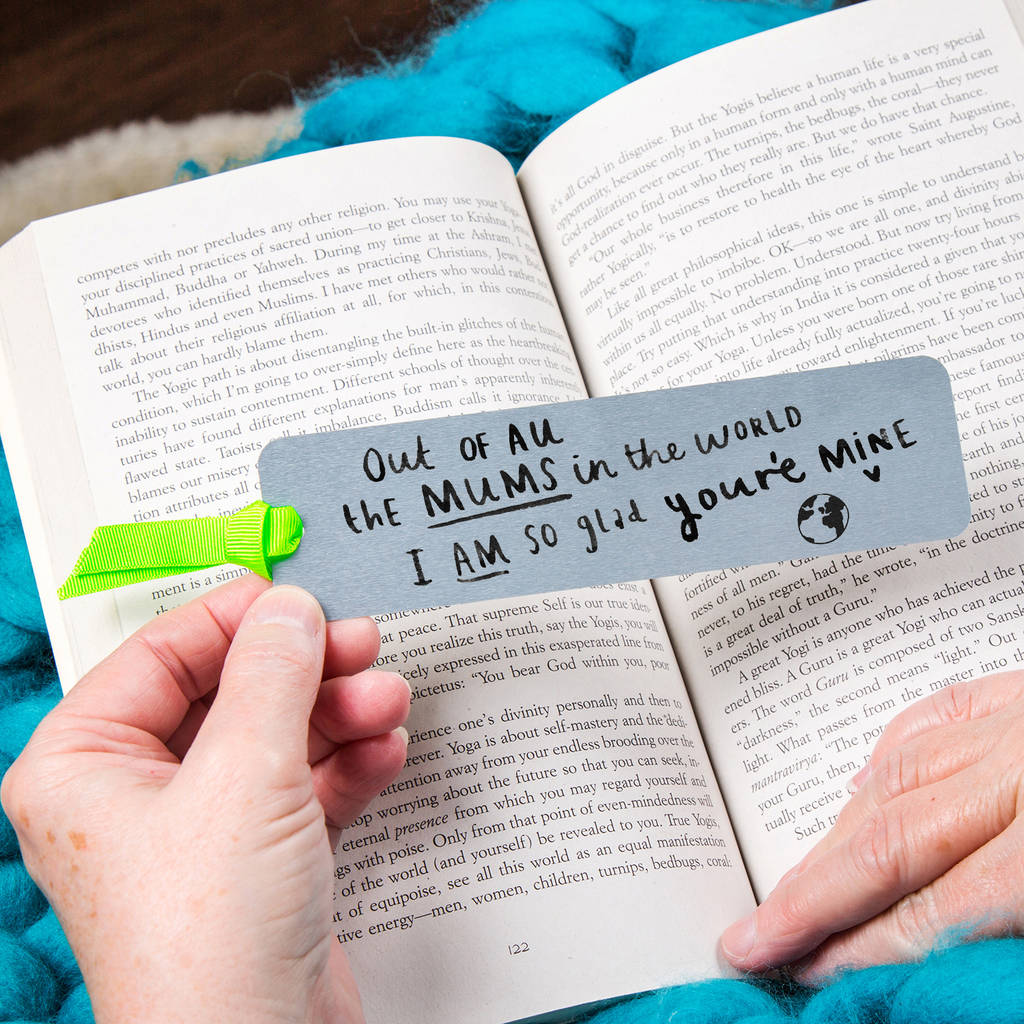 competes with nor precludes any other religion. You may use your Yoga,
your disciplined practices of sacred union—to get closer to Krishna, Jesus,
Muhammad, Buddha or Yahweh. During my time at the Ashram, I met
devotees who identified themselves as practicing Christians, Jews, Bud-
dhists, Hindus and even Muslims. I have met others who would rather not
talk about their religious affiliation at all, for which, in this contentious
world, you can hardly blame them.
The Yogic path is about disentangling the built-in glitches of the human
condition, which I'm going to over-simply define here as the heartbreaking
inability to sustain contentment. Different schools of thought over the cen-
turies have found different explanations for man's apparently inherently
flawed state. Taoists call it imbalance, Buddhism calls it ignorance,
blames our misery
tion attributes all
ment is a simp
Out OF ALL
the MUMS in the WORLD
I AM SO glad you're MINE
somewhere
at peace. That supreme Self is our true iden-
ore you realize this truth, say the Yogis, you will
icely expressed in this exasperated line from
pictetus: "You bear God within you, poor
erience one's divinity personally and then to
rever. Yoga is about self-mastery and the dedi-
attention away from your endless brooding over the
op worrying about the future so that you can seek, in-
eternal presence from which you may regard yourself and
gs with poise. Only from that point of even-mindedness will
of the world (and yourself) be revealed to you. True Yogis,
t of equipoise, see all this world as an equal manifestation
tive energy—men, women, children, turnips, bedbugs, coral:
122
it's all God in disguise. But the Yogis believe a human life is a very special
opportunity, because only in a human form and only with a human mind can
God-realization ever occur. The turnips, the bedbugs, the coral—they never
get a chance to find out who they really are. But we do have that chance.
"Our whole business therefore in this life," wrote Saint Augustine,
rather Yogically, "is to restore to health the eye of the heart whereby God
may be seen."
Like all great philosophical ideas, this one is simple to understand b
virtually impossible to imbibe. OK—so we are all one, and divinity abi
within us all equally. No problem. Understood. But now try living from
place. Try putting that understanding into practice twenty-four hours
It's not so easy. Which is why in India it is considered a given that yo
for your Yoga. Unless you were born one of those rare shin
into life already fully actualized, you're going to n
toward enlightenment. If you're luck
pilgrims have been com
ambassador to
report findi
first cen
of his jo
nothing,
to st
fortified with
ness of all men."
never, to his regret, had the time
is a great deal of truth," he wrote, "in the doctrine
impossible without a Guru."
A great Yogi is anyone who has achieved the p
ened bliss. A Guru is a great Yogi who can actua
ers. The word Guru is composed of two Sansk
"darkness," the second means "light." Out
light. What passes from the master into the
mantravirya: "The po
your Guru, then,
tually receive
Such tr